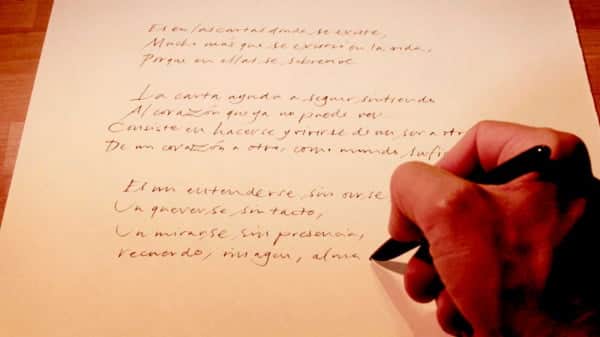 Es en las cartas donde se existe,
Mucho más que se existió en la vida,
Porque en ellas se sobrevive
La carta ayuda a seguir sintiendo
Al corazón que ya no puede ver
Consiste en hacerse y vivirse de un ser a
De un corazón a otro, como mundo,
Es un entenderse sin oirse
Un quererse sin tacto,
Un mirarse sin presencia,
recuerdo, imagen, alma